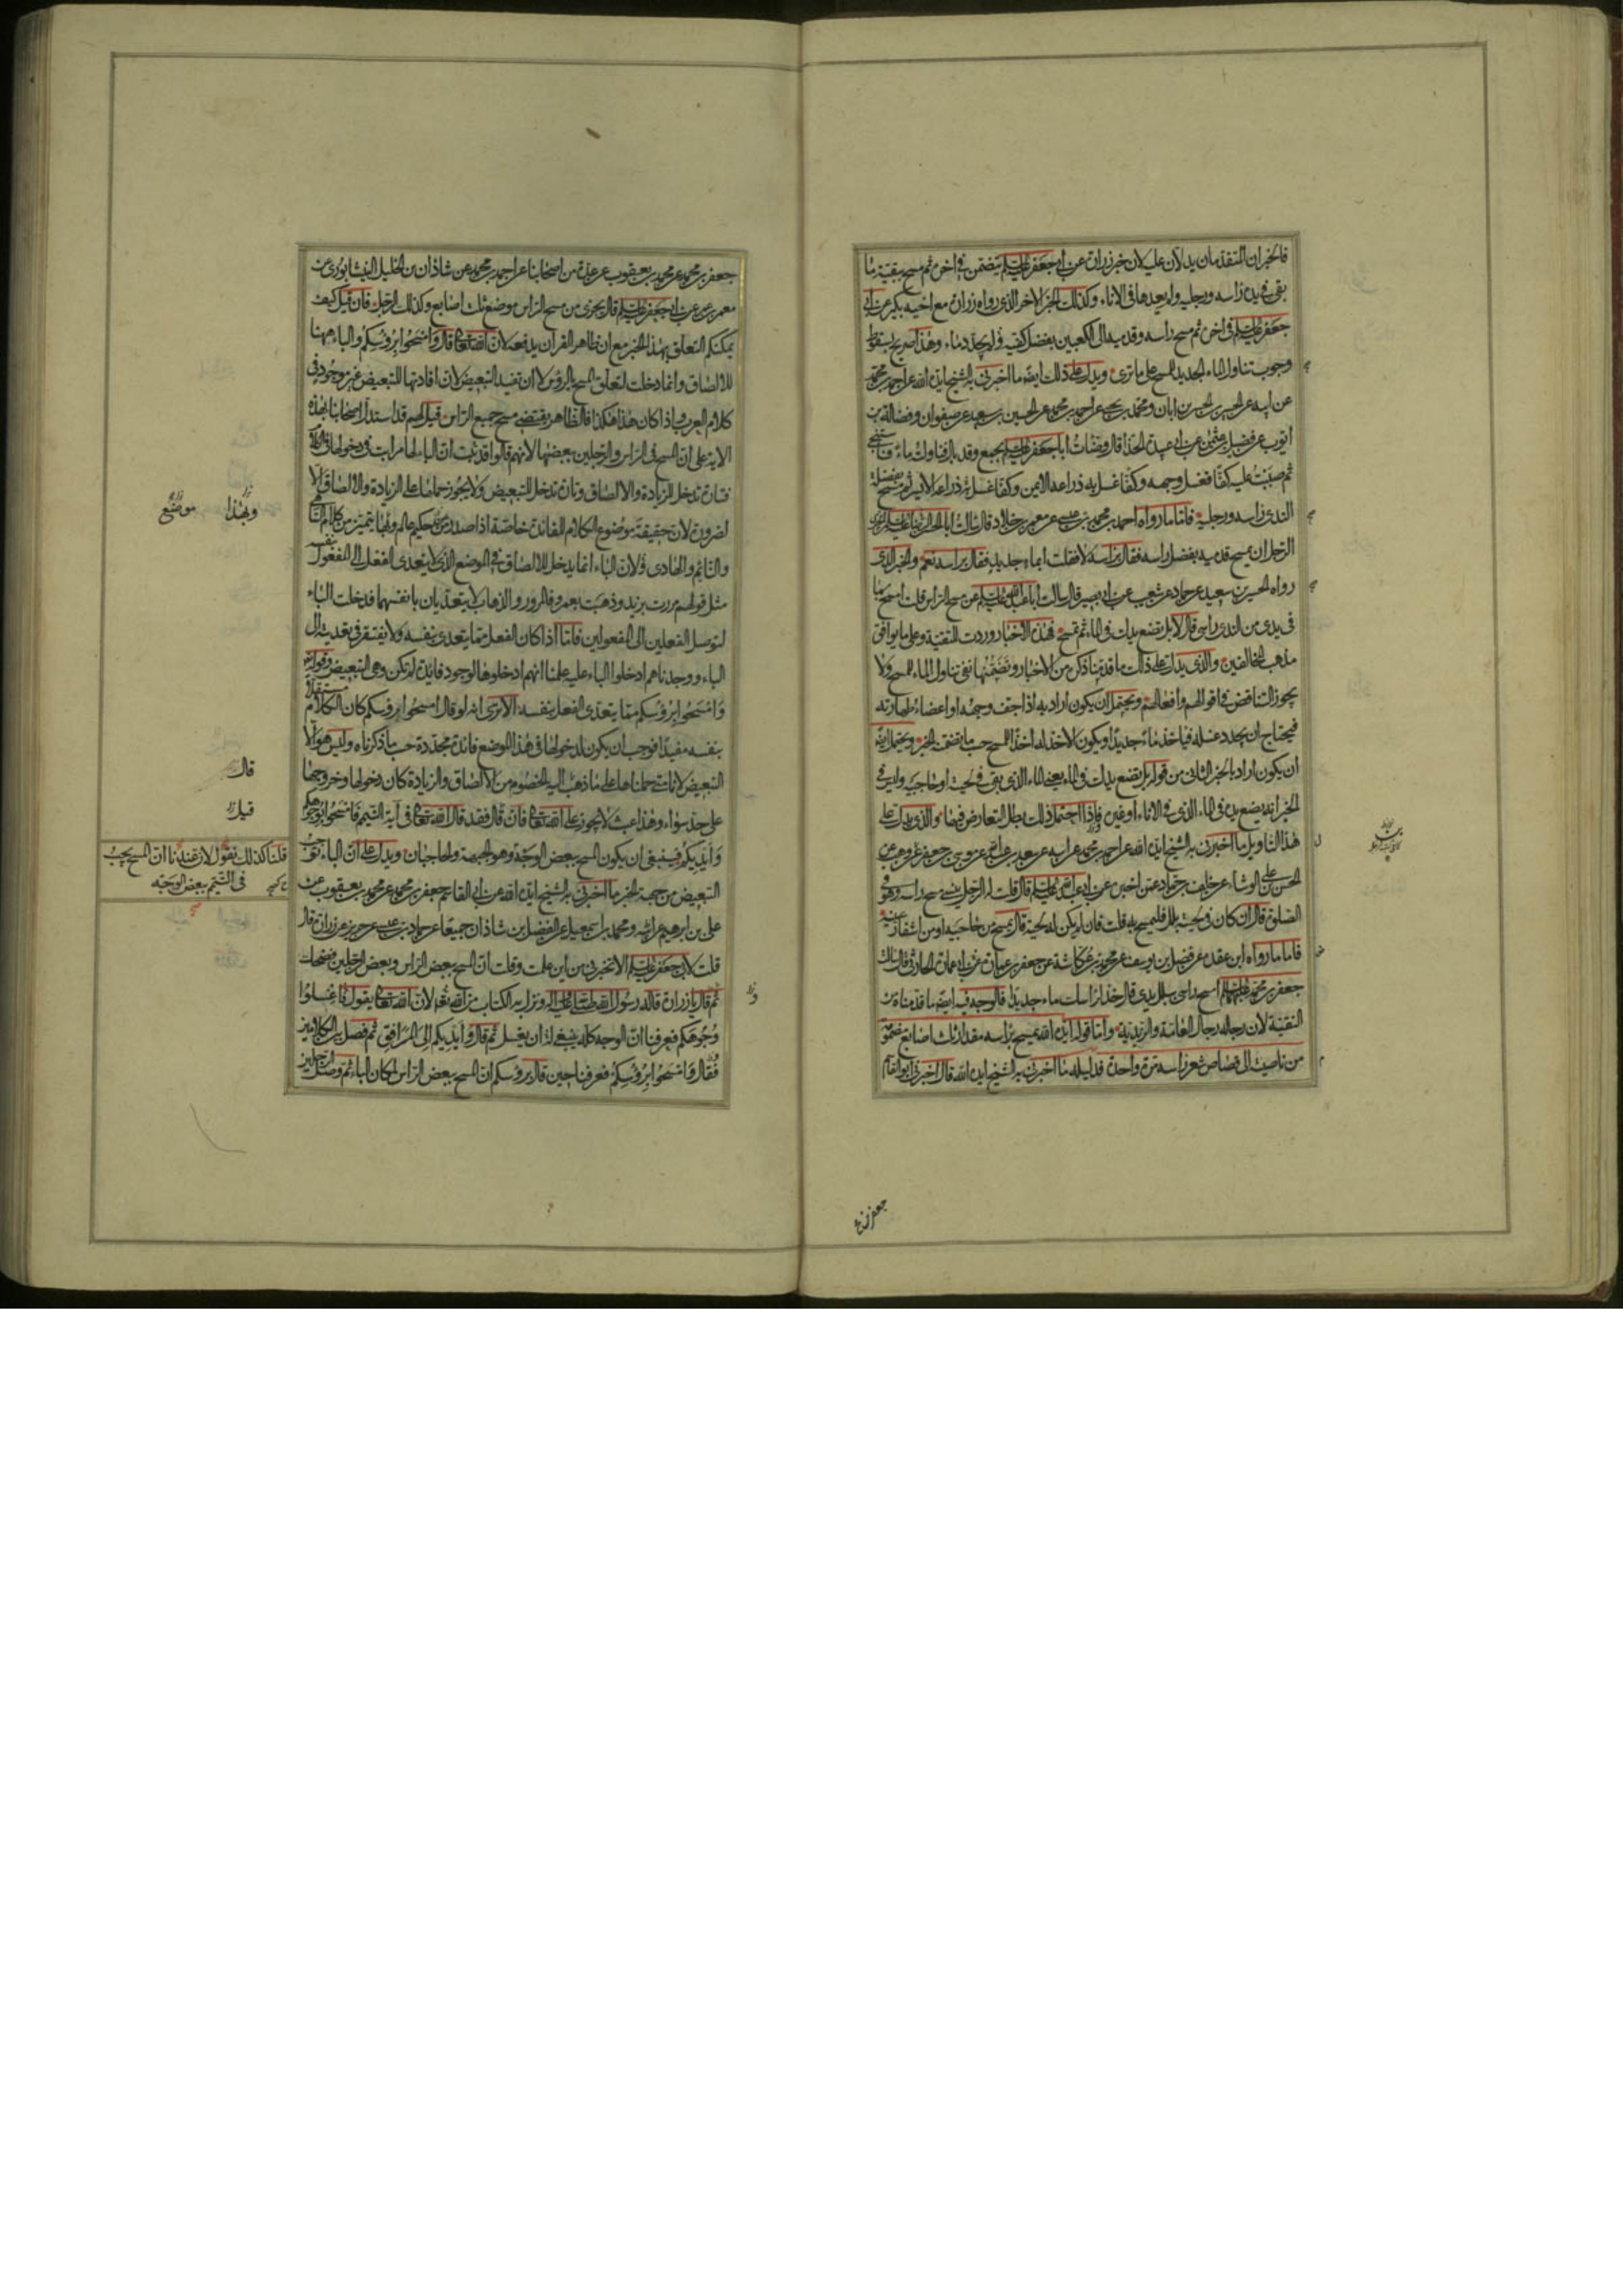 فالخبران المتقدمان يدلان عليه لان خبر زرارة عن ابي جعفر عليه السلم يتضمن في اخره ثم مسح ببقية ما
بقي في يده راسه ورجليه ولم يعدها في الاناء وكذلك الخبر الاخر الذي رواه زرارة مع اخيه بكير عن ابي
جعفر عليه السلم في اخره ثم مسح راسه وقدميه الى الكعبين بفضل كفيه ولم يجدد ماء وهذا صريح بسقوط
وجوب تناول الماء الجديد للمسح على ما ترى ويدل على ذلك ايضا ما اخبرني به الشيخ ايده الله عن احمد بن محمد
عن ابيه عن الحسين بن الحسن بن ابان ومحمد بن يحيى عن احمد بن محمد عن الحسين بن سعيد عن صفوان وفضالة بن
ايوب عن فضيل بن عثمن عن ابي عبيدة الحذا قال وضات ابا جعفر عليه السلم بجمع وقد بال فناولته ماء فاستنجى
ثم صببت عليه كفا فغسل وجهه وكفا غسل به ذراعه الايمن وكفا غسل به ذراعه الايسر ثم مسح بفضلة
الندى راسه ورجليه فاما ما رواه احمد بن محمد بن عيسى عن معمر بن خلاد قال سالت ابا الحسن عليه السلم ايجزي
الرجل ان يمسح قدميه بفضل راسه فقال براسه لا فقلت ابماء جديد فقال براسه نعم والخبر الذي
رواه الحسين بن سعيد عن حماد عن شعيب عن ابي بصير قال سالت ابا عبد الله عليه السلم عن مسح الراس قلت امسح بما
في يدي من الندى راسي قال لا بل تضع يدك في الماء ثم تمسح فهذه الاخبار وردت للتقية وعلى ما يوافق
مذهب المخالفين والذي يدل على ذلك ما قدمنا ذكره من الاخبار وتضمنها نفي تناول الماء للمسح ولا
يجوز التناقض في اقوالهم وافعالهم ويحتمل ان يكون اراد به اذا جف وجهه او اعضاء طهارته
فيحتاج ان يجدد غسله فياخذ ماء جديدا ويكون الاخذ له اخذا للمسح حسب ما تضمنه الخبر ويحتمل ايضا
ان يكون اراد بالخبر الثاني من قوله بل تضع يدك في الماء يعني الماء الذي بقي في لحيته او حاجبيه وليس في
الخبر انه يضع يده في الماء الذي في الاناء او غيره فاذا احتمل ذلك بطل التعارض فيها والذي يدل على
هذا التاويل ما اخبرني به الشيخ ايده الله عن احمد بن محمد عن ابيه عن سعد بن عبد الله عن موسى بن جعفر عن وهب عن
الحسن بن علي الوشاء عن خلف بن حماد عمن اخبره عن ابي عبد الله عليه السلم قال قلت له الرجل ينسى مسح راسه وهو في
الصلوة قال ان كان في لحيته بلل فليمسح به قلت فان لم يكن له لحية قال يمسح من حاجبيه او من اشفار عينيه
فاما ما رواه ابن عقدة عن فضل بن يوسف عن محمد بن عكاشة عن جعفر بن عمارة عن ابي عمارة الحارثي قال سالت
جعفر بن محمد عليهما السلم امسح راسي ببلل يدي قال خذ لراسك ماء جديدا فالوجه فيه ايضا ما قدمناه من
التقية لان رجاله رجال العامة والزيدية واما قوله ايده الله يمسح براسه مقدار ثلث اصابع مضمومة
من ناصيته الى قصاص شعر راسه مرة واحدة فدليله ما اخبرني به الشيخ ايده الله قال اخبرني ابو القاسم
جعفر بن
جعفر بن محمد عن محمد بن يعقوب عن عدة من اصحابنا عن احمد بن محمد عن شاذان بن الخليل النيشابوري عن
معمر بن عمر عن ابي جعفر عليه السلم قال يجزي من مسح الراس موضع ثلث اصابع وكذلك الرجل فان قيل كيف
يمكنكم التعلق بهذا الخبر مع ان ظاهر القرآن يدفعه لان الله تعالى قال وامسحوا برؤسكم والباء ههنا
للالصاق وانما دخلت لتعلق المسح بالرؤس لا ان تفيد التبعيض لان افادتها للتبعيض غير موجود في
كلام العرب واذا كان هذا هكذا فالظاهر يقتضي مسح جميع الراس قيل لهم قد استدل اصحابنا بهذه
الاية على ان المسح في الراس والرجلين ببعضها لانهم قالوا قد ثبت ان الباء لها مراتب في دخولها في الكلام
فتارة تدخل للزيادة والالصاق وتارة تدخل للتبعيض ولا يجوز حملها على الزيادة والالصاق الا
لضرورة لان حقيقة موضوع الكلام للفائدة خاصة اذا صدر من حكيم عالم وبها يتميز من كلام الساهي
والنائم والهاذي ولان الباء انما يدخل للالصاق في الموضع الذي لا يتعدى الفعل الى المفعول بنفسه
مثل قولهم مررت بزيد وذهبت بعمرو فالمرور والذهاب لا يتعديان بانفسهما فدخلت الباء
لتوصل الفعلين الى المفعولين فاما اذا كان الفعل مما يتعدى بنفسه ولا يفتقر في تعديته الى
الباء ووجدناهم ادخلوا الباء عليه علمنا انهم ادخلوها لوجود فائدة لم تكن وهي التبعيض وقوله تعالى
وامسحوا برؤسكم مما يتعدى الفعل بنفسه الا ترى انه لو قال امسحوا رؤسكم كان الكلام مستقلا
بنفسه مفيدا فوجب ان يكون لدخولها في هذا الموضع فائدة مجددة حسب ما ذكرناه وليس هو الا
التبعيض لانا متى حملناها على ما ذهب اليه الخصوم من الالصاق والزيادة كان دخولها وخروجها
على حد سواء وهذا عبث لا يجوز على الله تعالى فان قال فقد قال الله تعالى في آية التيمم فامسحوا بوجوهكم
وايديكم فينبغي ان يكون المسح ببعض الوجه وهو الجبهة والحاجبان ويدل على ان الباء توجب
التبعيض من جهة الخبر ما اخبرني به الشيخ ايده الله عن ابي القاسم جعفر بن محمد عن محمد بن يعقوب عن
علي بن ابرهيم عن ابيه ومحمد بن اسمعيل عن الفضل بن شاذان جميعا عن حماد بن عيسى عن حريز عن زرارة قال
قلت لابي جعفر عليه السلم الا تخبرني من اين علمت وقلت ان المسح ببعض الراس وبعض الرجلين فضحك
ثم قال يا زرارة قاله رسول الله صلى الله عليه وآله ونزل به الكتاب من الله تعالى لان الله تعالى يقول فاغسلوا
وجوهكم فعرفنا ان الوجه كله ينبغي له ان يغسل ثم قال وايديكم الى المرافق ثم فصل بين الكلامين
فقال وامسحوا برؤسكم فعرفنا حين قال برؤسكم ان المسح ببعض الراس لمكان الباء ثم وصل الرجلين
وبهذا
موضع
قال
قيل
قلنا كذلك نقول لان عندنا ان المسح يجب
في التيمم ببعض الوجه